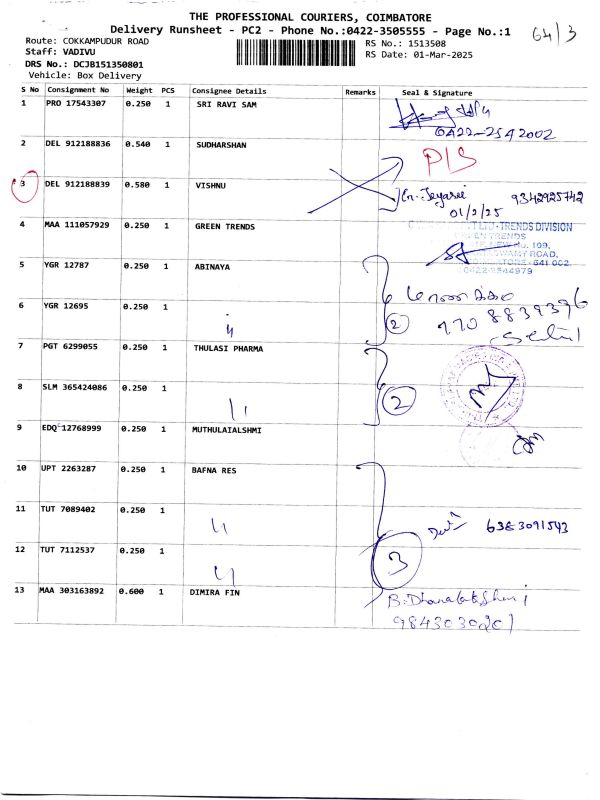 THE PROFESSIONAL COURIERS, COIMBATORE
Delivery Runsheet - PC2 - Phone No.:0422-3505555 - Page No.:1
64/3
Route: COKKAMPUDUR ROAD
RS No.: 1513508
Staff: VADIVU
RS Date: 01-Mar-2025
DRS No.: DCJB151350801
Vehicle: Box Delivery
S No Consignment No Weight PCS Consignee Details Remarks Seal & Signature
1 PRO 17543307 0.250 1 SRI RAVI SAM
0422-2542002
2 DEL 912188836 0.540 1 SUDHARSHAN
P/S
3 DEL 912188839 0.580 1 VISHNU
9342925742
01/2/25
4 MAA 111057929 0.250 1 GREEN TRENDS
TRENDS DIVISION
GREEN TRENDS
109,
ROAD,
641 002.
0422-2544979
5 YGR 12787 0.250 1 ABINAYA
6 YGR 12695 0.250 1 "
2
7 PGT 6299055 0.250 1 THULASI PHARMA
8 SLM 365424086 0.250 1 "
2
9 EDQ 12768999 0.250 1 MUTHULAIALSHMI
10 UPT 2263287 0.250 1 BAFNA RES
11 TUT 7089402 0.250 1 "
6383091543
12 TUT 7112537 0.250 1 "
3
13 MAA 303163892 0.600 1 DIMIRA FIN
9843030201